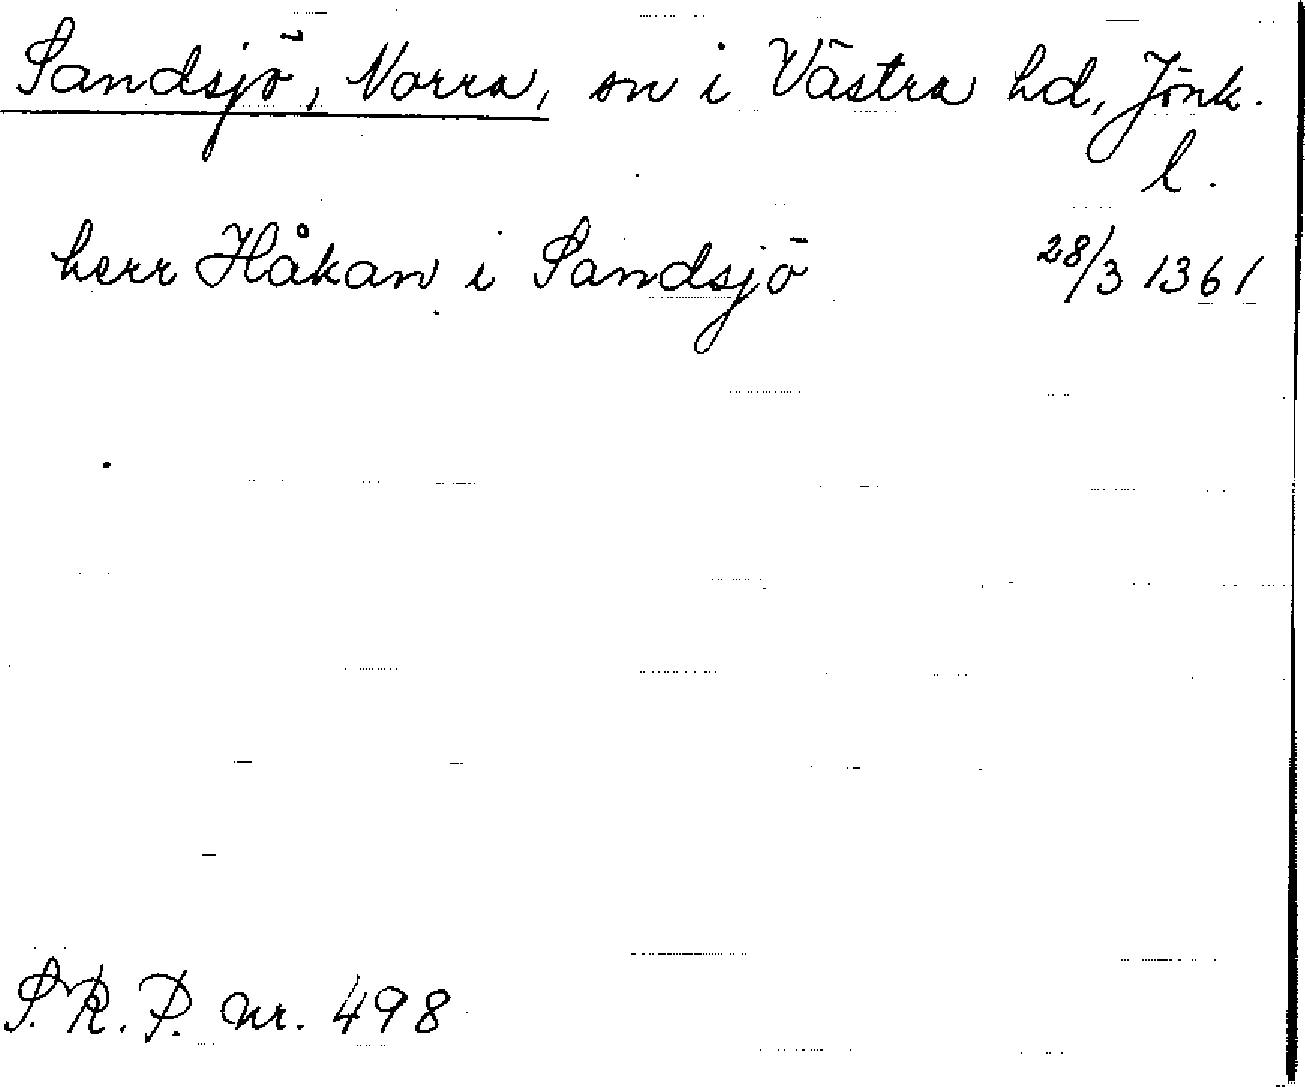 Sandsjö, Norra, sn i Västra hd, Jönk.
l.
herr Håkan i Sandsjö 28/3 1361
S.R.P. nr. 498